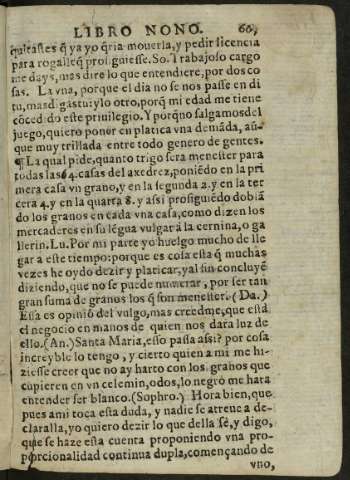 LIBRO NONO. 60,
quitastes q̃ ya yo q̃ria mouerla, y pedir licencia
para rogalleq̃ prosiguiesse. So. Trabajoso cargo
me days, mas dire lo que entendiere, por dos co
sas. La vna, porque el dia no se nos passe en di
tu, mas di gastui ylo otro, porq̃ mi edad me tiene
cõcedido este priuilegio. Y porq̃no salgamos del
juego, quiero poner en platica vna demãda, aũ-
que muy trillada entre todo genero de gentes.
¶ La qual pide, quanto trigo sera menester para
todas las 64. casas del axedrez, poniẽdo en la pri
mera casa vn grano, y en la segunda 2. y en la ter
cera 4. y en la quarta 8. y assi prosiguiẽdo doblã
do los granos en cada vna casa, como dizen los
mercaderes en su lẽgua vulgar à la cernina, o ga
llerin. Lu. Por mi parte yo huelgo mucho de lle
gar a este tiempo: porque es cosa esta q̃ muchas
vezes he oydo dezir y platicar, y al fin concluyẽ
diziendo, que no se puede numerar, por ser tan
gran suma de granos los q̃ son menester. (Da.)
Essa es opiniõ del vulgo, mas creedme, que està
el negocio en manos de quien nos dara luz de
ello. (An.) Santa Maria, esso passa assi? por cosa
increyble lo tengo, y cierto quien a mi me hi-
ziesse creer que no ay harto con los granos que
cupieren en vn celemin, o dos, lo negro me hara
entender ser blanco. (Sophro.) Hora bien, que
pues ami toca esta duda, y nadie se atreue a de-
claralla, yo quiero dezir lo que della sè, y digo,
que se haze esta cuenta proponiendo vna pro-
porcionalidad continua dupla, començando de
vno,